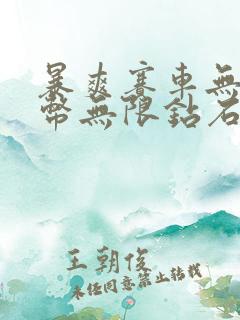 暴爽赛車無
幣無限鈷石
王朝俊
未经同意禁止转载